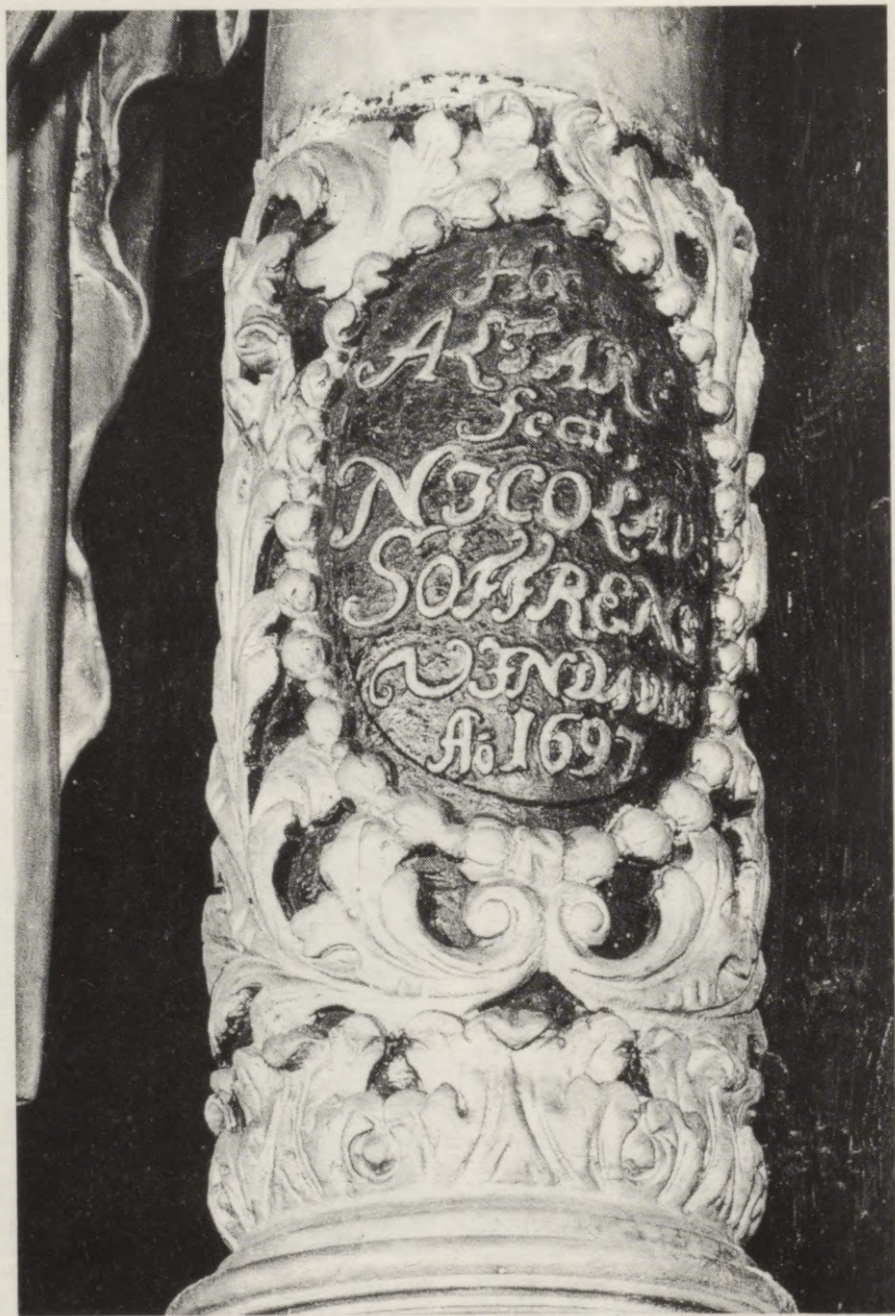 Hoc
ALTARE
fecit
NICOLAU
SÖFFRENS
VINDAVIE
Ao 1697